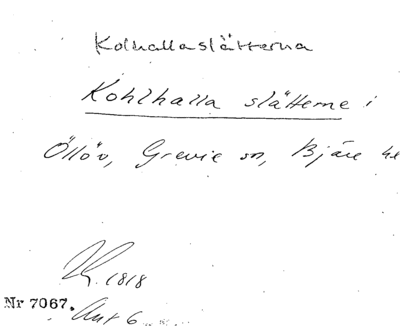 Kolhallaslätterna
Kohlhalla slätterne i
Öllöv, Grevie sn, Bjäre hd
1818
Nr 7067.
Akt 6